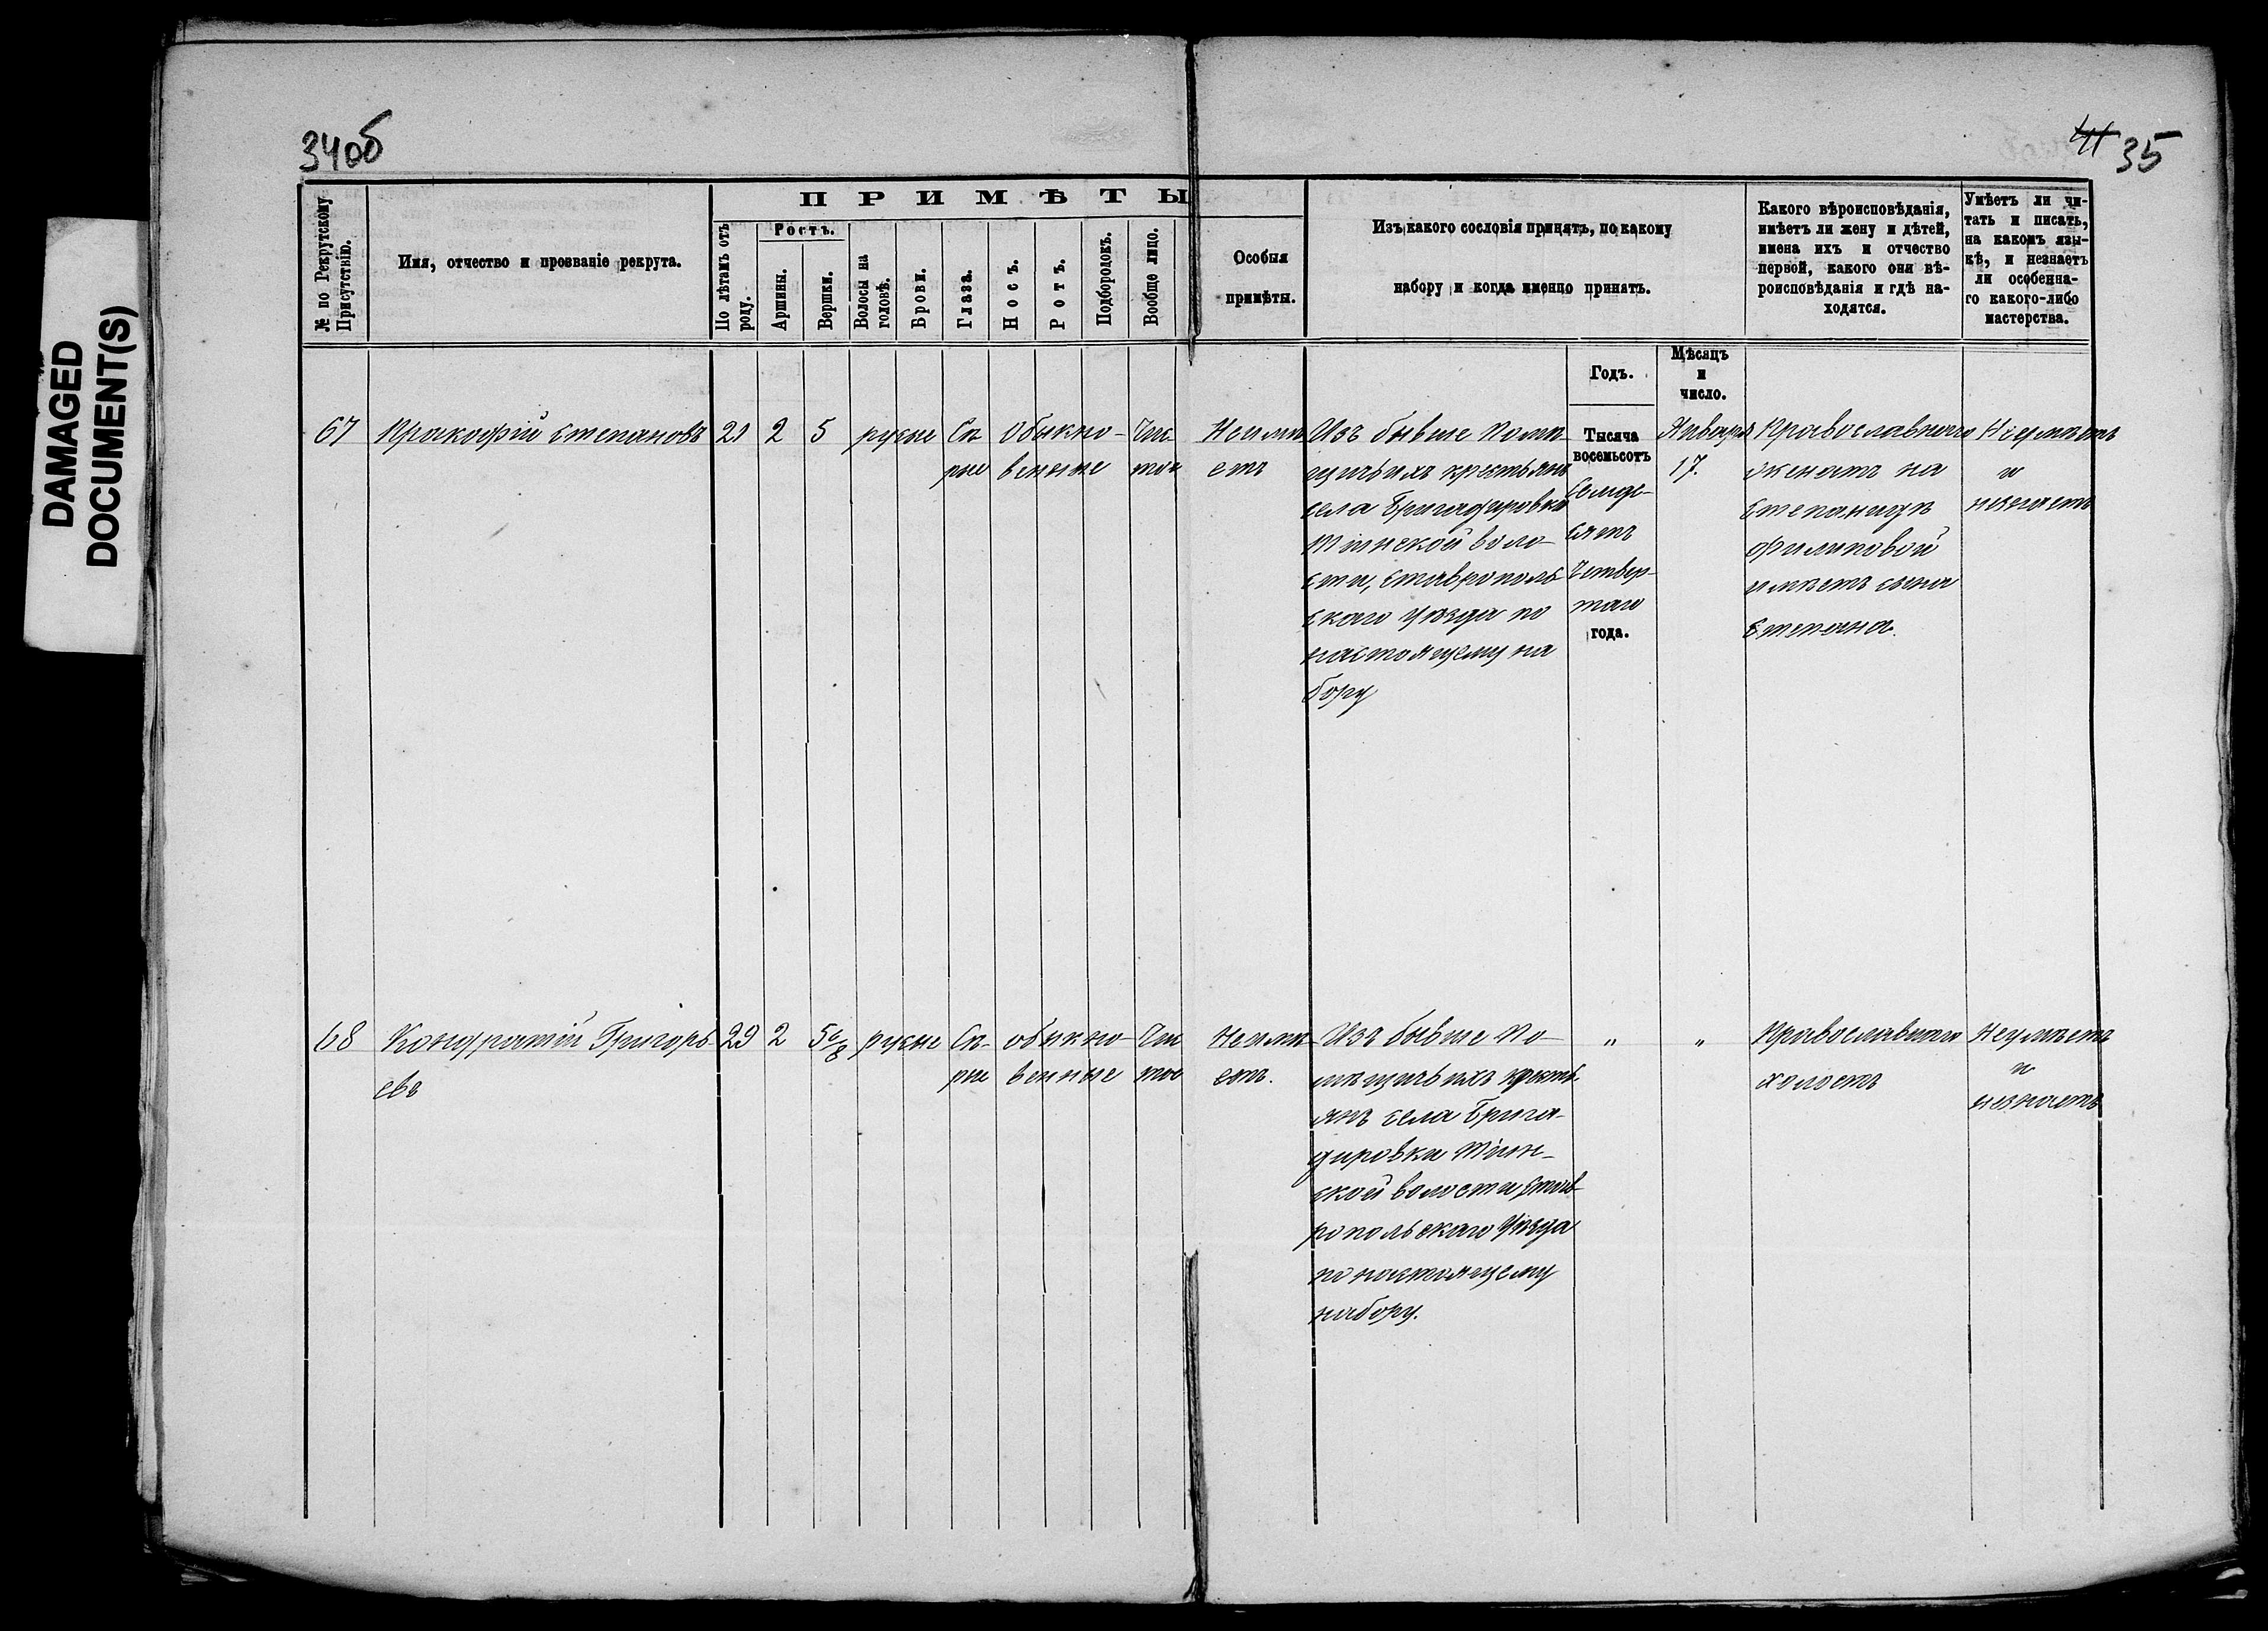 DAMAGED
DOCUMENT(S)
34об
41 35
№ по Рекрутскому Присутствію.
Имя, отчество и прозваніе рекрута.
ПРИМѢТЫ
По лѣтамъ отъ роду.
Ростъ.
Аршины.
Вершки.
Волосы на головѣ.
Брови.
Глаза.
Носъ.
Ротъ.
Подбородокъ.
Вообще лицо.
Особыя
примѣты.
Изъ какого сословія принятъ, по какому
набору и когда именно принятъ.
Какого вѣроисповѣданія,
имѣетъ ли жену и дѣтей,
имена ихъ и отчество
первой, какого они вѣ-
роисповѣданія и гдѣ на-
ходятся.
Умѣетъ ли чи-
тать и писать,
на какомъ язы-
кѣ, и незнаетъ
ли особенна-
го какого-либо
мастерства.
Годъ.
Мѣсяцъ
и
число.
67
Прокофій Степановъ
21
2
5
русые
Сѣ
рые
Обыкно-
венные
Чис
тое
Неимѣ
етъ
Изъ бывше Помѣ
щичьихъ крестьянъ
села Бригадировки
Тіинской воло-
сти, Ставрополь
скаго уѣзда по
настоящему на
бору
Тысяча
восемьсотъ
семде-
сятъ
четвер-
таго
года.
Января
17.
Православнаго
женатъ на
Степанидѣ
Филиповой
имѣетъ сына
Степана.
Неумѣетъ
и
незнаетъ
68
Кондратій Григорь
евъ
29
2
5 6/8
русые
Сѣ-
рые
обыкно-
венные
Чис
тое
Неимѣ
етъ.
Изъ бывше По-
мѣщичьихъ кресть
янъ села Брига-
дировки Тіин-
ской волости Став-
ропольскаго Уѣзда
по настоящему
набору.
"
"
Православнаго
холостъ
Неумѣетъ
и
незнаетъ